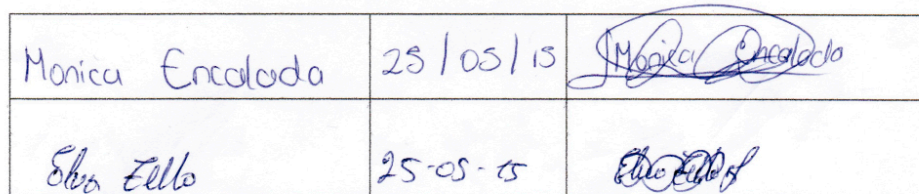 Monica Encalada 25/05/15 Monica Encalada
Tello 25-05-15